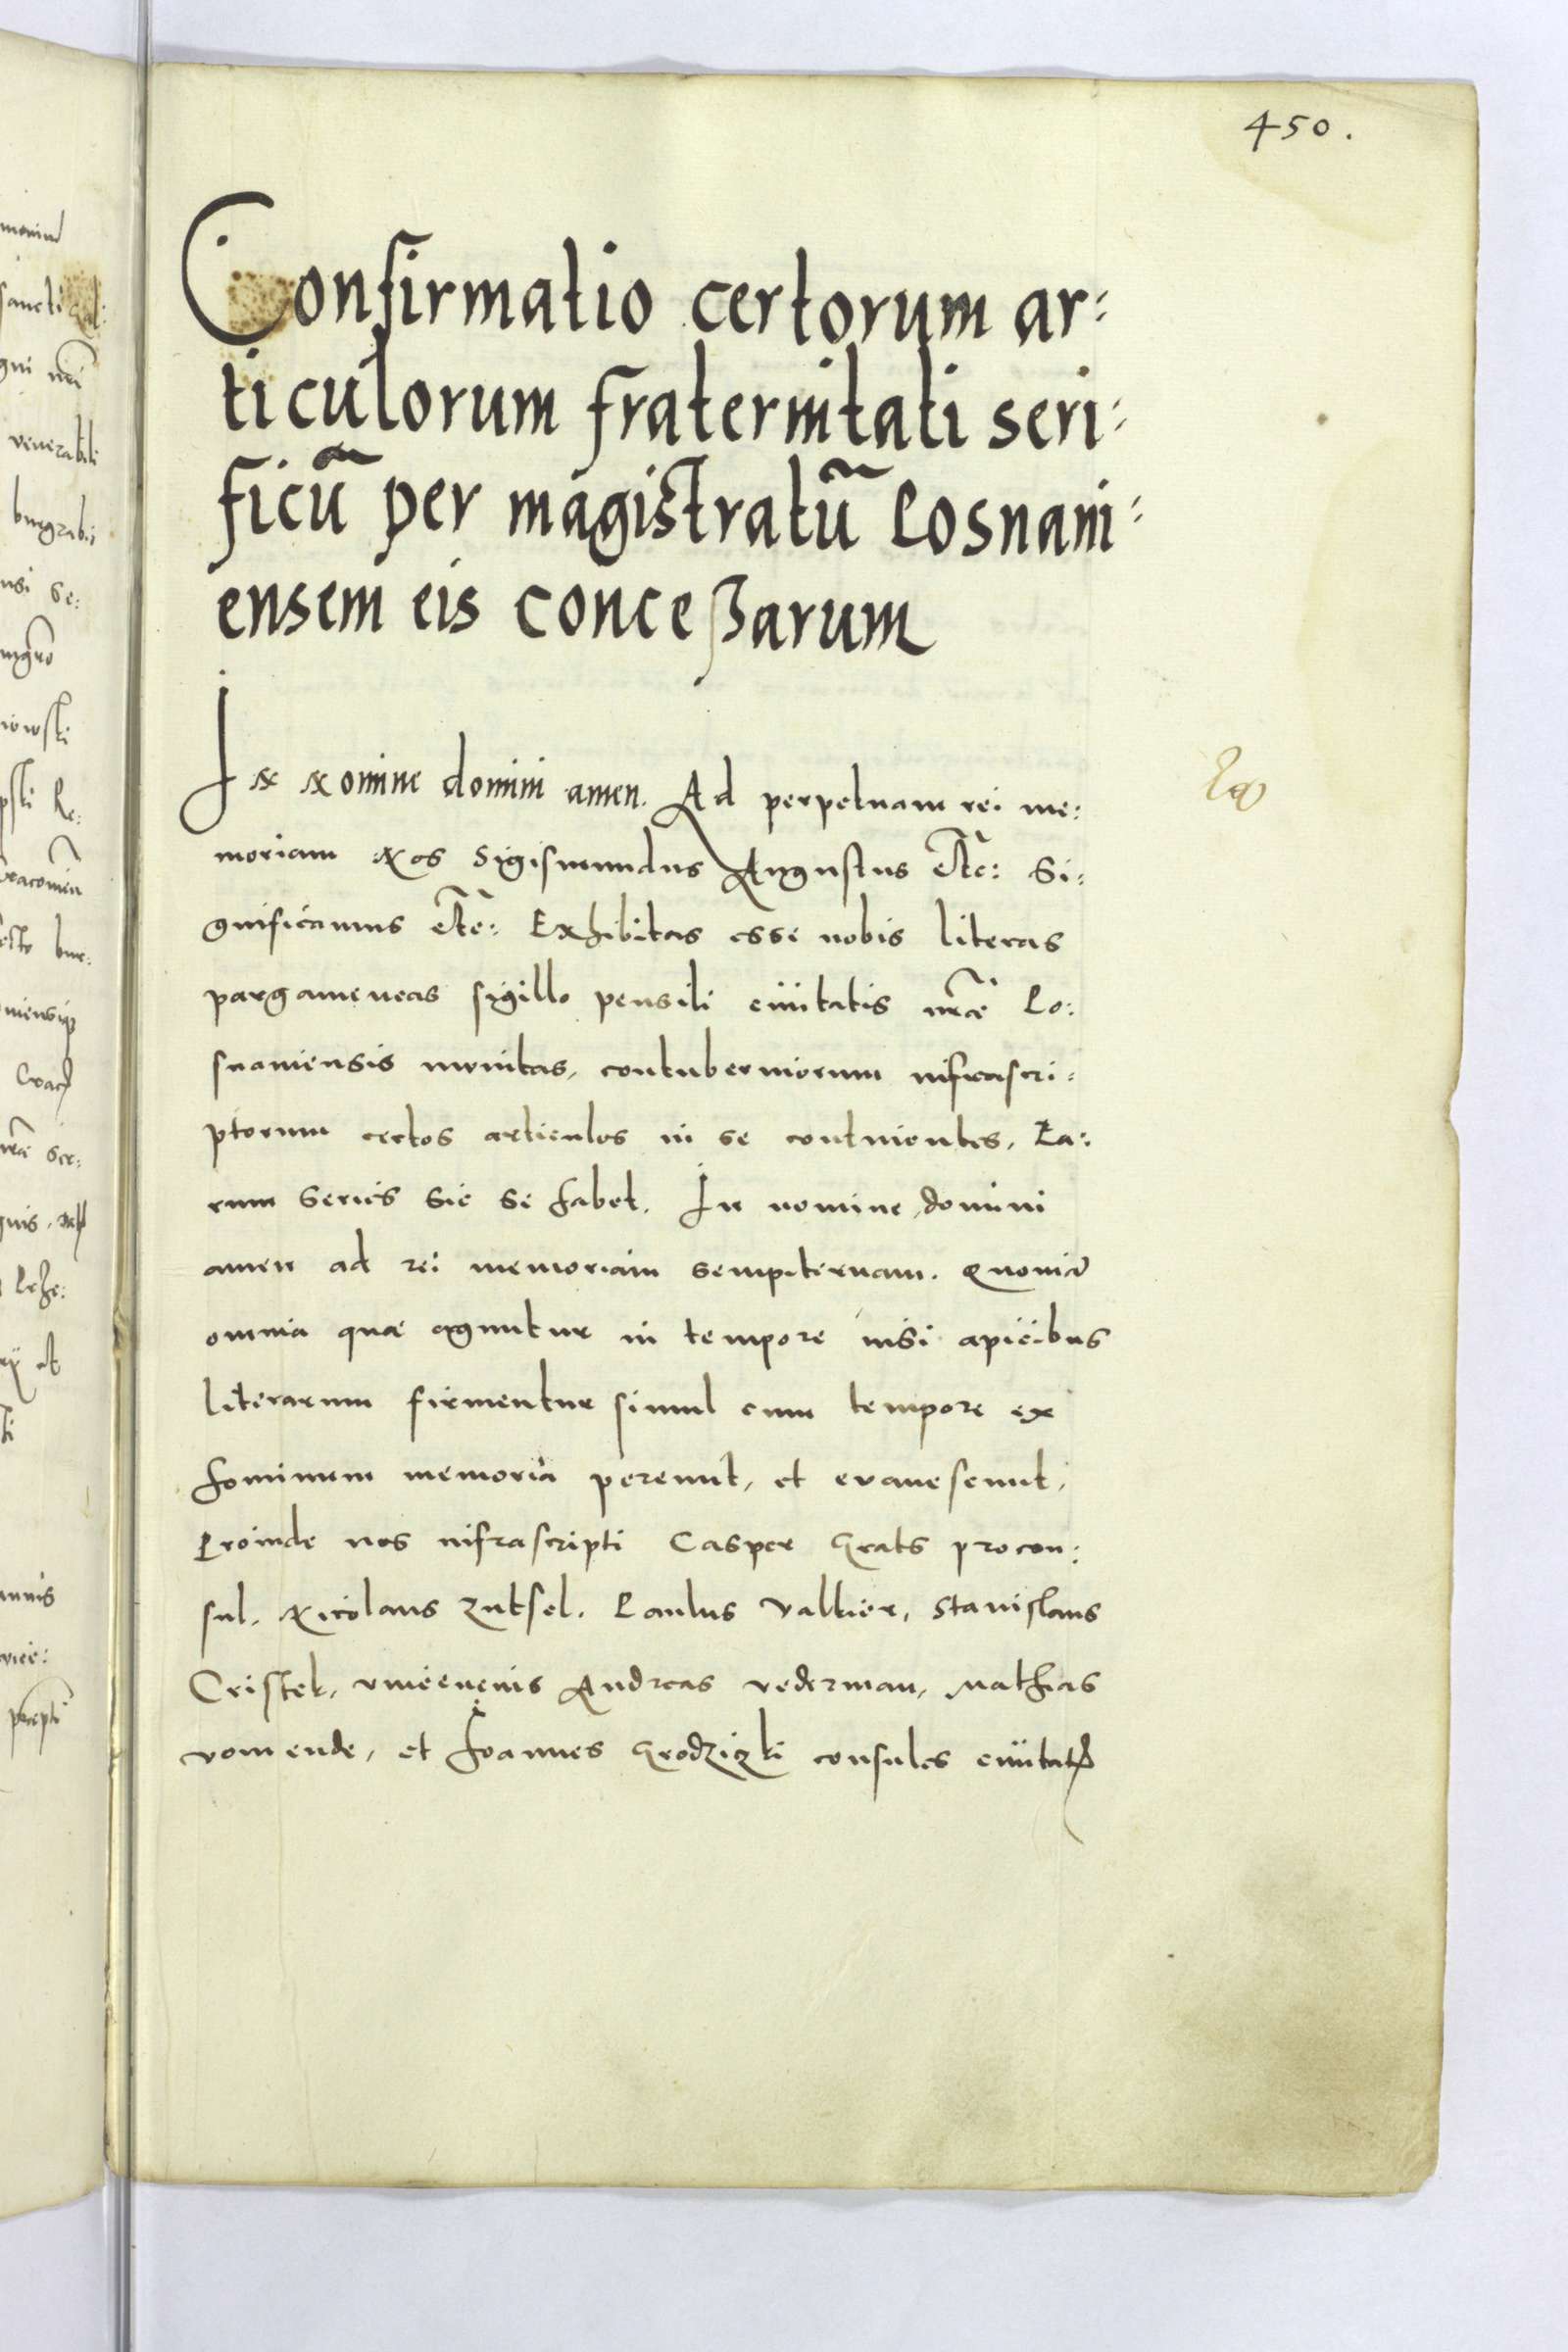 450.
Confirmatio certorum ar:
ticulorum fraternitati seri:
ficū per magistratū Posnani:
ensem eis conceßarum
In Nomine domini amen. Ad perpetuam rei me:
moriam Nos Sigismundus Augustus etc: Si:
gnificamus etc: Exhibitas esse nobis literas
pargameneas sigillo pensili ciuitatis nrae Po:
snaniensis munitas, contuberniorum infrascri:
ptorum certos articulos in se continentes, Ea:
rum series sic se habet. In nomine domini
amen ad rei memoriam sempiternam. Quoniā
omnia quae aguntur in tempore nisi apicibus
literarum firmentur simul cum tempore ex
hominum memoria pereunt, et evanescunt,
Proinde nos infrascripti Casper Grats procon:
sul, Nicolaus Zutsel, Paulus Valkier, Stanislaus
Cristek, Andreas vederman, Mathias
vom ende, et Joannes Grodziczki consules ciuitatis